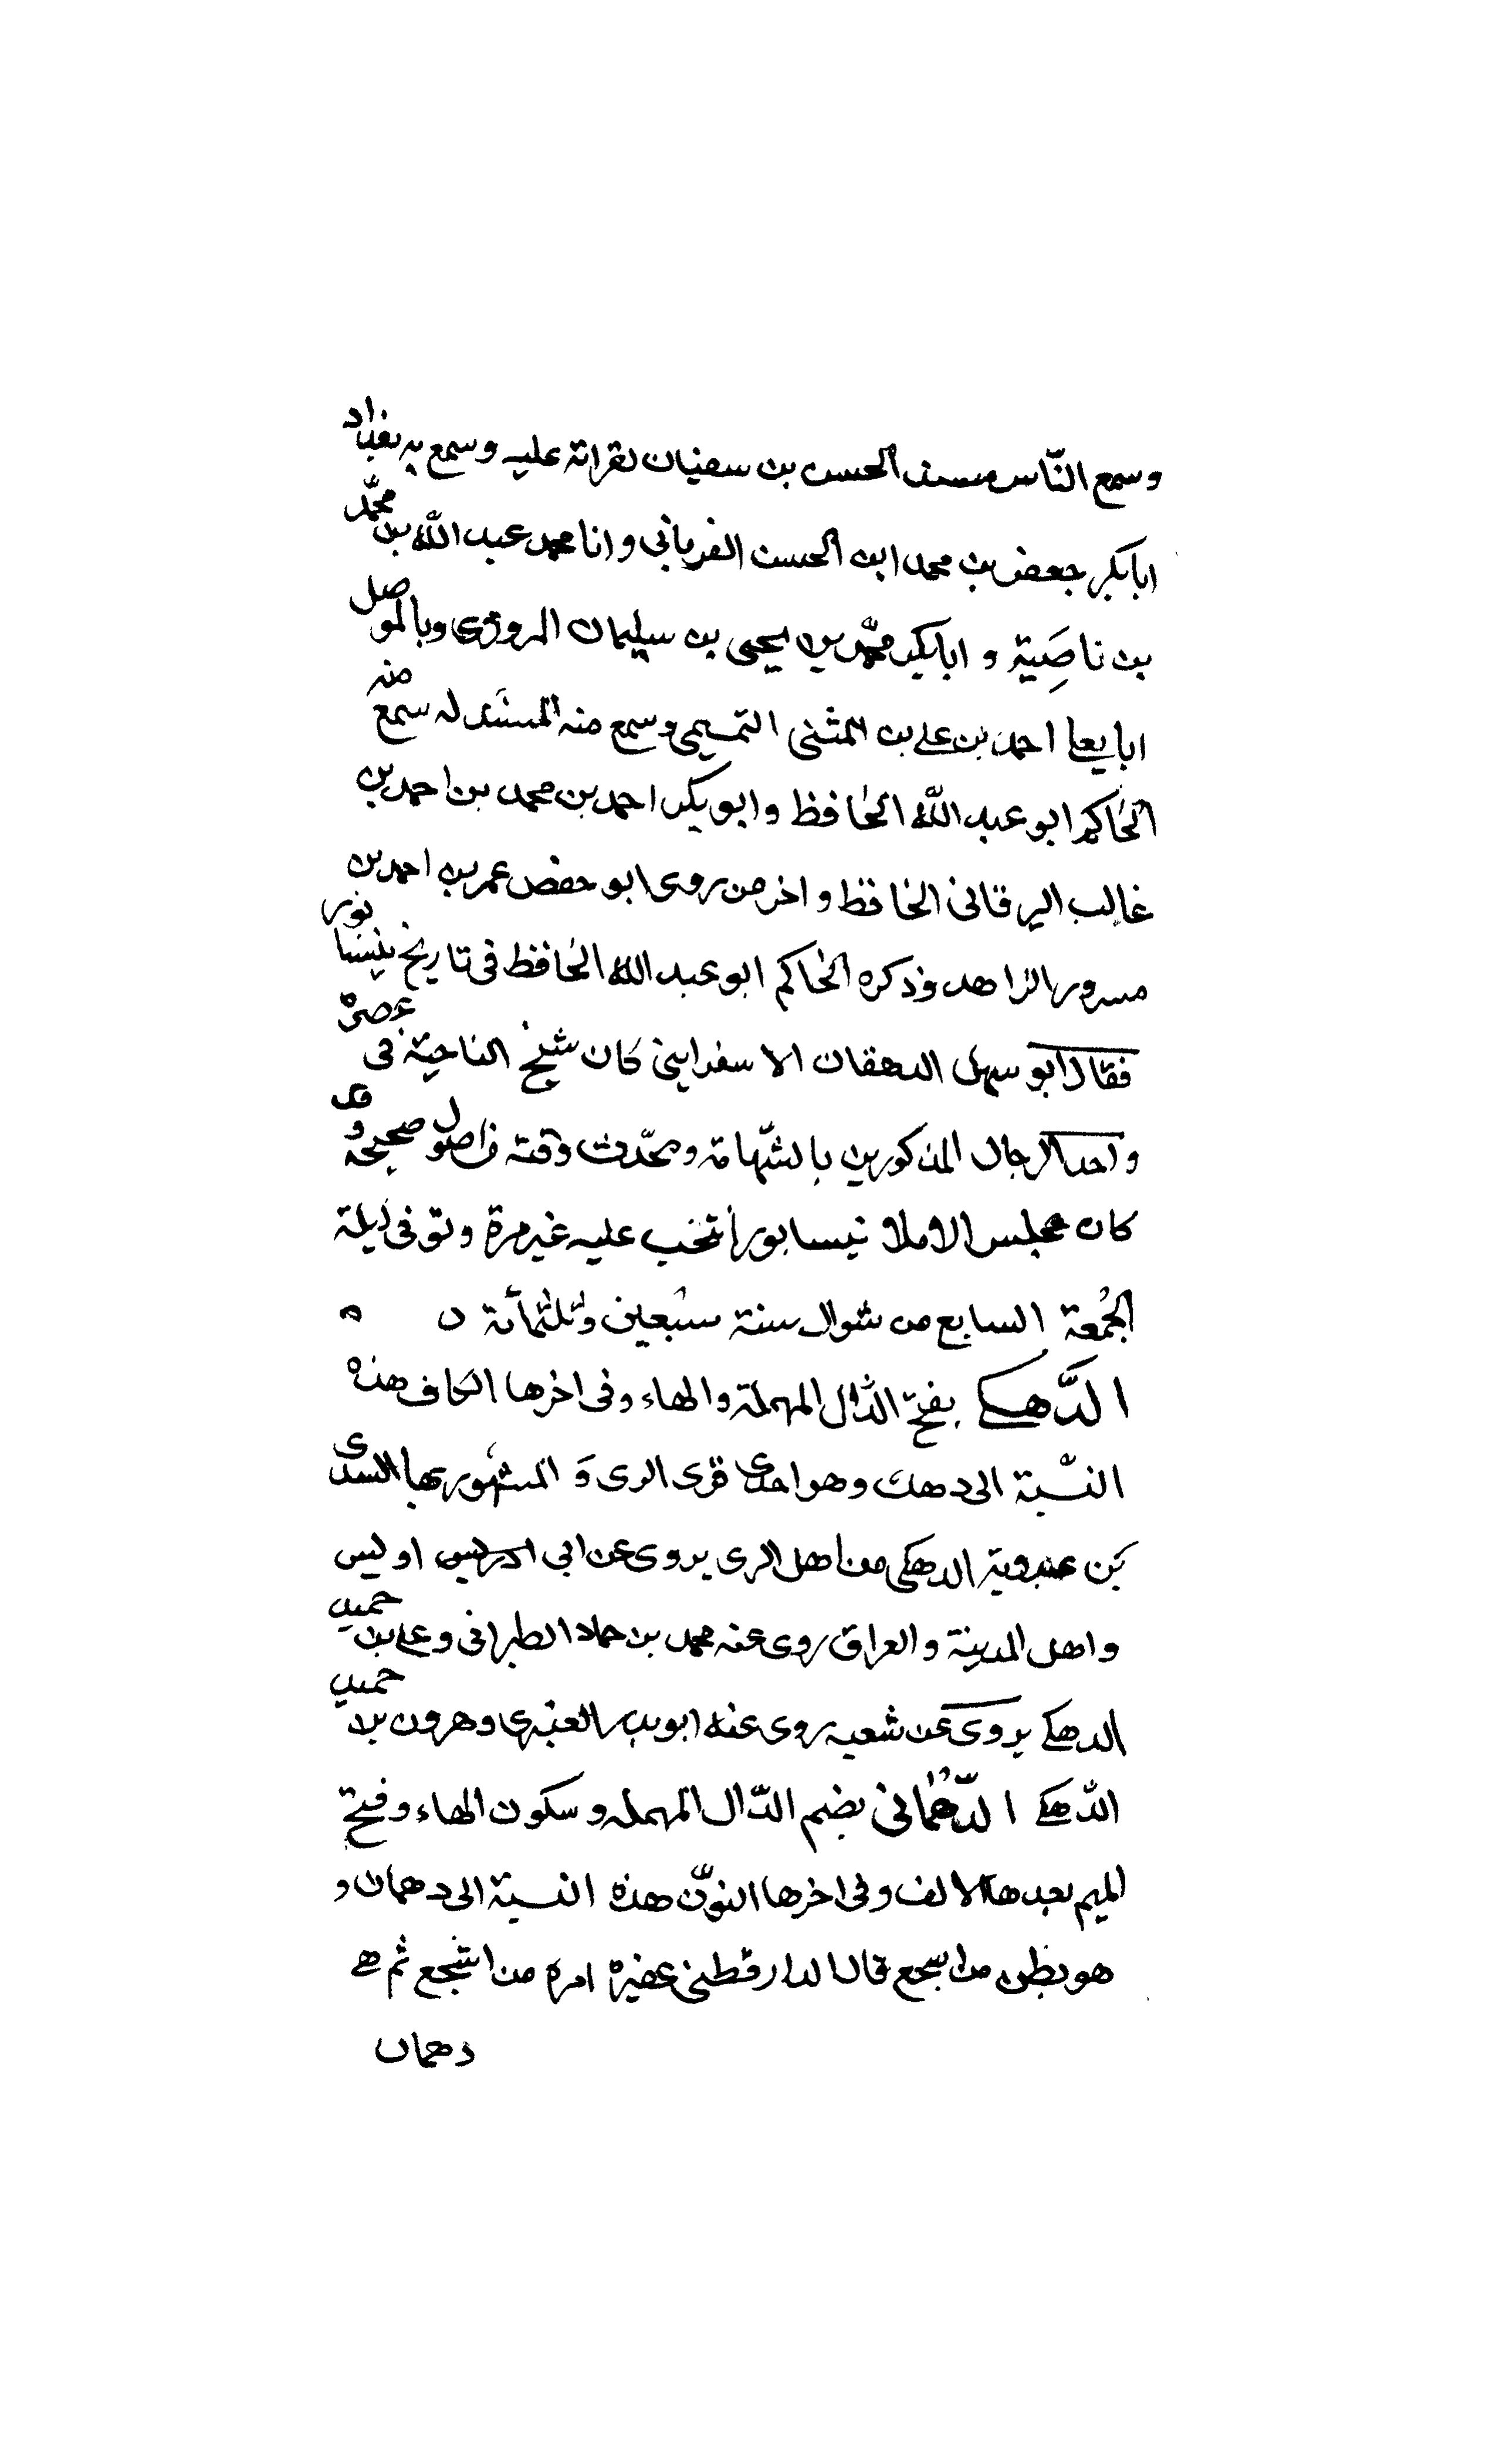 وسمع الناس مسند الحسن بن سفيان بقراته عليه وسمع به بغداد
ابا بكر جعفر بن محمد ابن الحسن الفريابي وانا محمد عبد الله بن محمّد
بن ناصَية و ابابكر محمّد بن يحيى بن سليمان المروزى وبالموصل
ابا يعلى احمد بن علي بن المثنى التميمي وسمع منه المسند له سمع منه
الحاكم ابو عبد الله الحافظ وابو بكر احمد بن محمد بن احمد بن
غالب البرقاني الحافظ واخر من روى ابو حفص عمر بن احمد بن
مسرور الزاهد وذكره الحاكم ابو عبد الله الحافظ في تاريخ نيسابور
فقال ابو سهل الدهقان الاسفرايني كان شيخ الناحية في عصره
واحد الرجال المذكورين بالشّهامة ومحدّث وقته من اصول صحيحة وقد
كان مجلس الاملا نيسابور انتخب عليه غير مرة وتوفى ليلة
الجُمعة السابع من شوال سنة سبعين وثلثمائة ٥ ٥
الدَّهكي بفتح الدّال المهملة والهاء وفى اخرها الكاف هذه
النسّبة الى دهك وهو احدى قرى الرى وَ المشهور بها السدى
بَن عبدوية الدهكى من اهل الرى يروى عن ابي ادريس اويس
واهل المدينة والعراق روى عنه محمد بن حماد الطبراني وعلى بن حميد
الدهكي يروى عن شعبه روى عنه ابو بدر العنبرى وهرون بن حميد
الدّهكي الدّهُماني بضم الدّال المهمله وسكون الهاء وفتح
الميم بعدها الالف وفى اخرها النوّن هذه النسبة الى دهمان و
هو بطن من اشجع قال الدارقطنى عفيرة امرة من اشجع ثم هي
دهمان